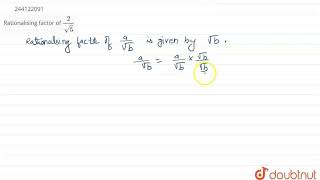 244122091
Rationalising factor of 2/√5
Rationalising factor of a/√b is given by √b.
a/√b = a/√b × √b/√b
doubtnut